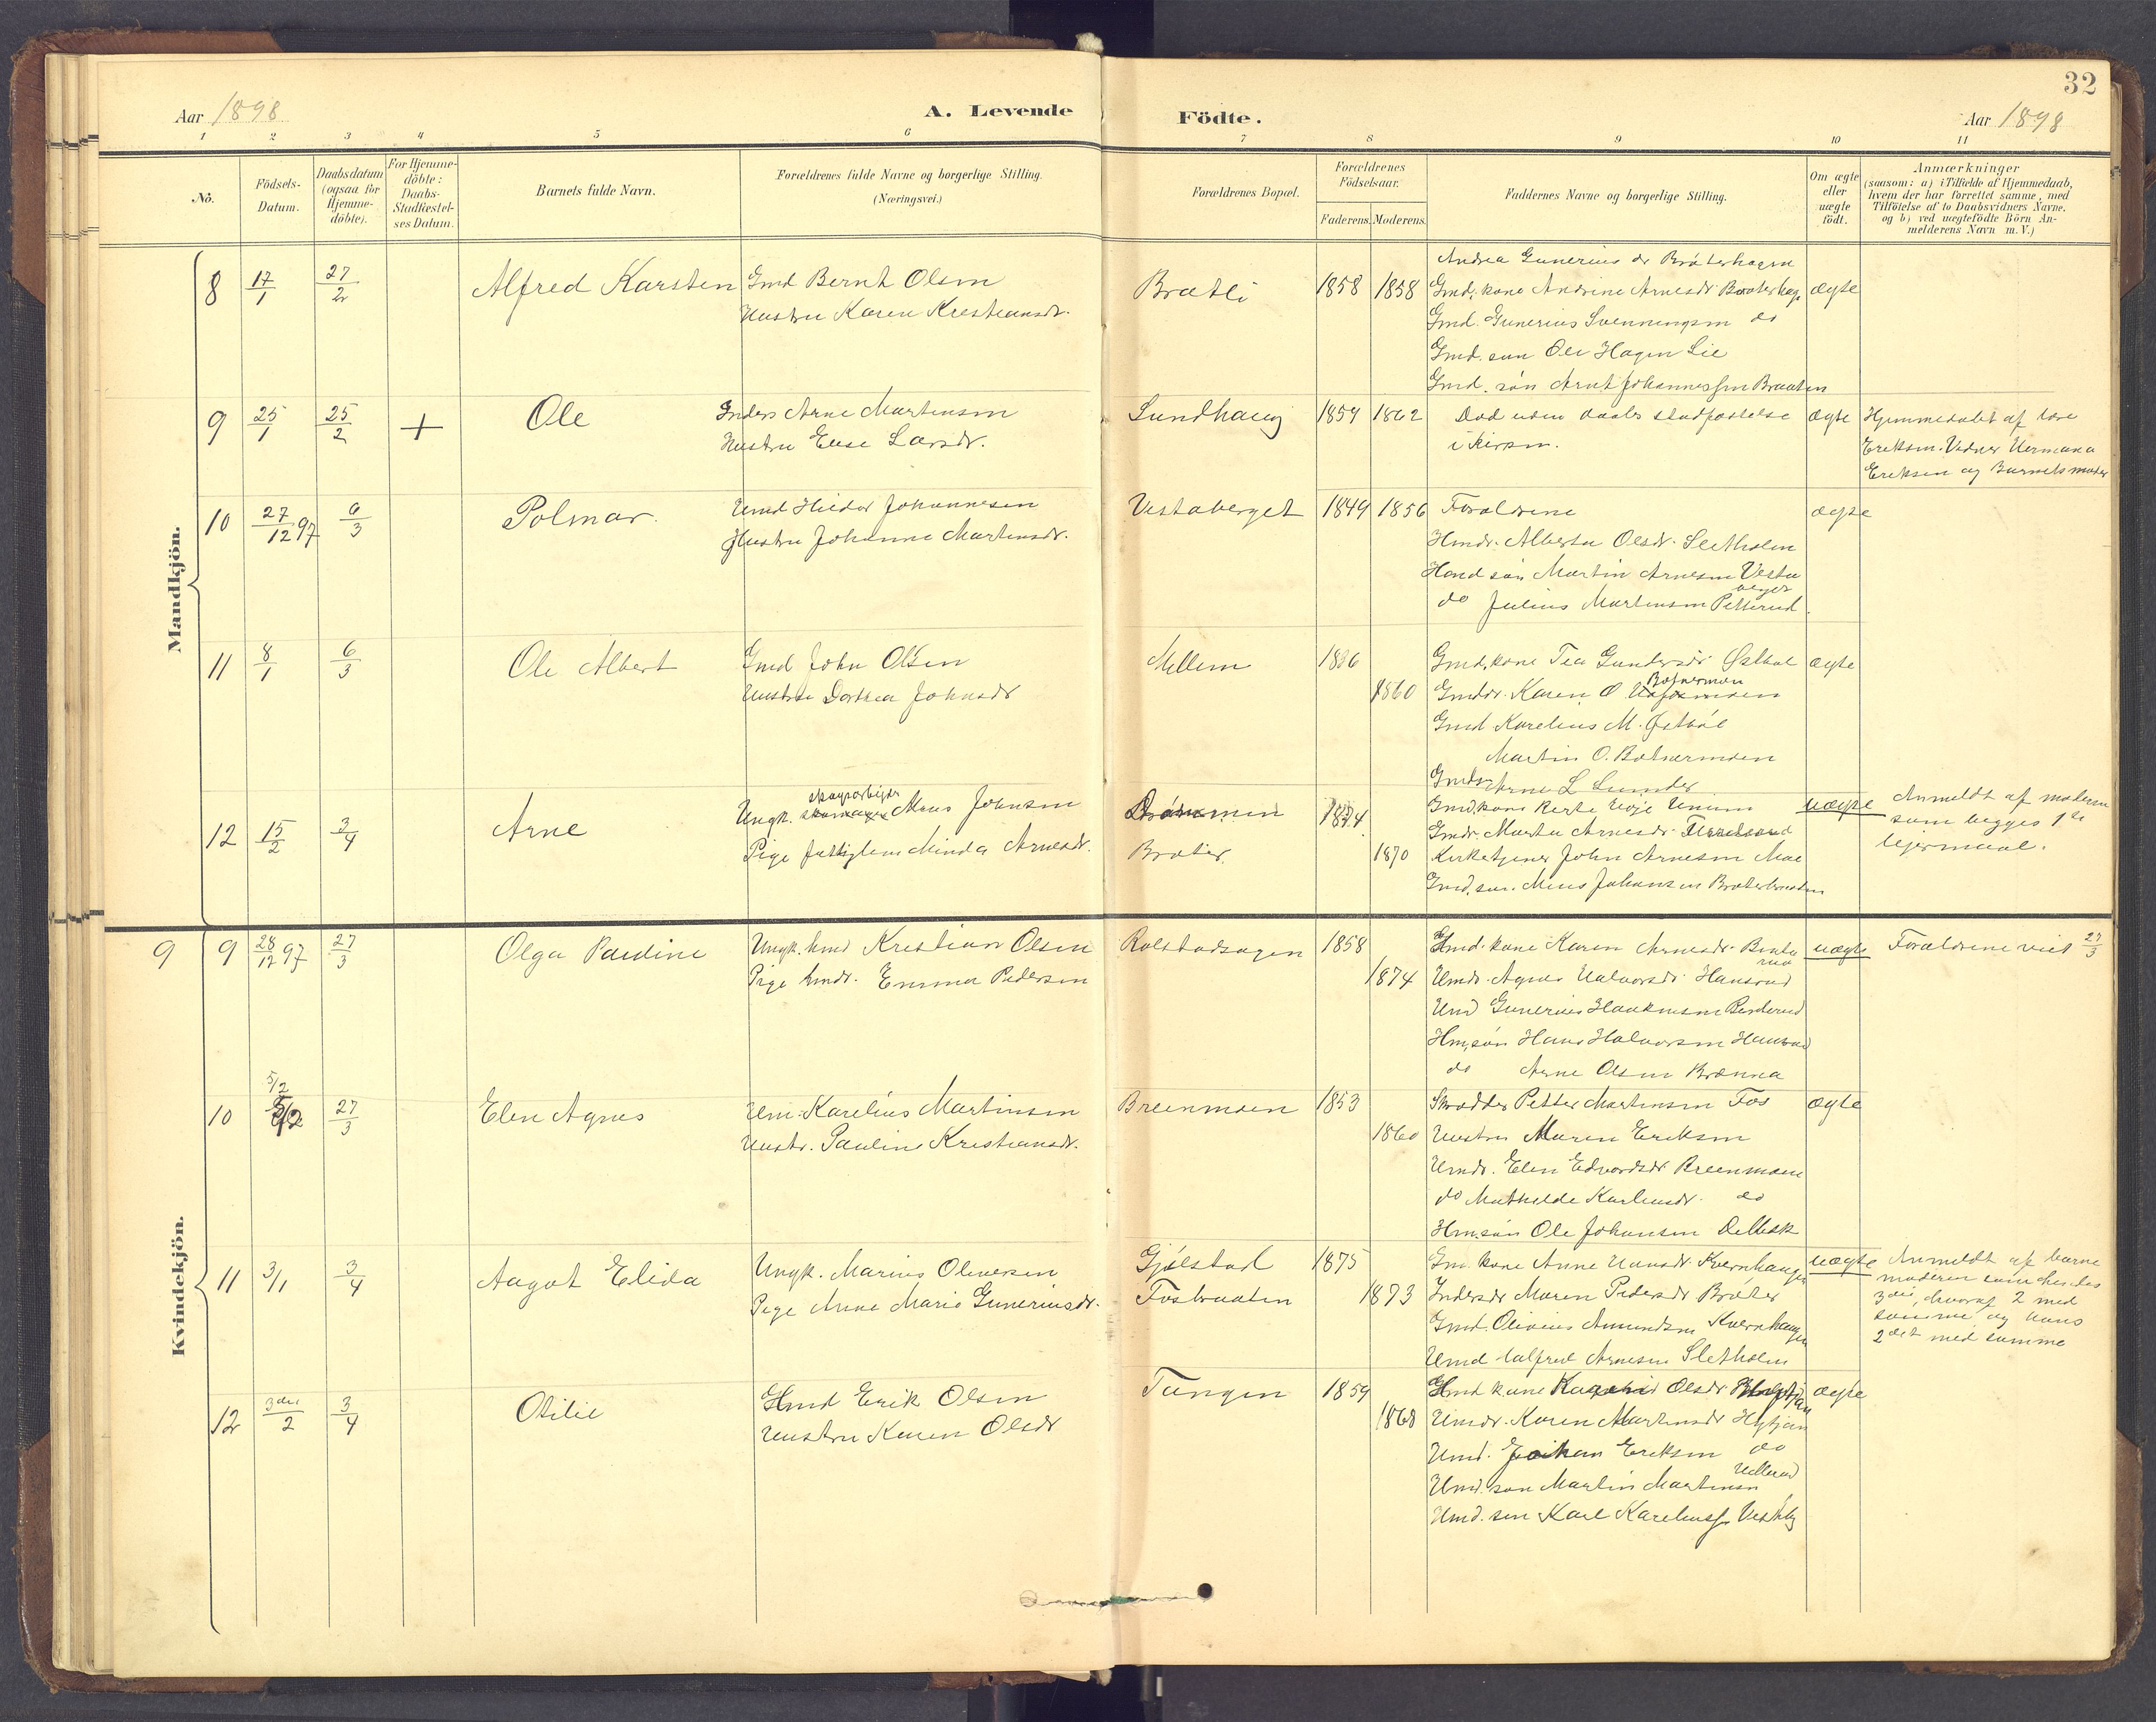 32
Aar 1898
A. Levende
Födte.
Aar 1898
1 2 3 4 5 6 7 8 9 10 11
No.
Födsels-Datum.
Daabsdatum (ogsaa for Hjemme-döbte).
For Hjemme-döbte: Daabs-Stadfæstel-ses Datum.
Barnets fulde Navn.
Forældrenes fulde Navne og borgerlige Stilling.
(Næringsvei.)
Forældrenes Bopæl.
Forældrenes Födselsaar.
Faderens. Moderens.
Faddernes Navne og borgerlige Stilling.
Om ægte eller uægte födt.
Anmærkninger
(saasom: a) i Tilfælde af Hjemmedaab,
hvem der har forrettet samme, med
Tilföielse af to Daabsvidners Navne.
og b) ved uægtefödte Börn An-
melderens Navn m. V.)
Mandkjön.
8 17/1 27/2 Alfred Karsten
Gmd Bernt Olsen
Hustru Karen Krestiansdr.
Bratli 1858 1858
Andrea Gunerius dr Bråterhagen
Gmd. kone Andrine Arnesdr Braterhag
Gmd. Gunerius Svenningsen do
Gmd. søn Ole Hagen Lie
Gmd. søn Arnt Johannessen Braaten
ægte
9 25/1 25/2 + Ole
Inders Arne Martinsen
Hustru Else Larsdr.
Sundhaug 1859 1862
Død uden daabs stadfæstelse
i kirken.
ægte
Hjemmedøbt af Lars
Eriksen. Vidner Hermana
Eriksen og Barnets moder
10 27/12 97 6/3 Polmar
Hmd Hilder Johannesen
Hustru Johanne Martinsdr.
Vestaberget 1849 1856
Forældrene
Hmdr. Alberta Olsdr. Sletholen
Hmd søn Martin Arnesen Vesta
berget
do Julius Martinsen Petterud
ægte
11 8/1 6/3 Ole Albert
Gmd John Olsen
Hustru Dorthea Johnsdr
Mellem 1836
1860
Gmd. kone Tea Gundersdr Østbøl
Botnermoen
Gmddr. Karen O.
Gmd Karelius M. Østbøl
Martin O. Botnermoen
Gmds. Arne L Lunder
ægte
12 15/2 3/4 Arne
skogsarbejder
Ungk. Mons Johnsen
Pige fattiglem Minda Arnesdr.
Bråter. 1874
1870
Gmd. kone Berte
Gmdr. Marta Arnesdr.
Kirketjener John Arnesen Moe
Gmd. søn. Mons Johansen Bråterbraaten
uægte
Anmeldt af moderen
som begges 1ste
lejermaal.
Kvindekjön.
9 9 28/12 97 27/3 Olga Pauline
Ungk. hmd Kristian Olsen
Pige hmdr. Emma Pedersen
Rolstadsagen 1858
1874
Hmd. kone Karen Arnesdr.
Hmdr. Agnes Halvorsdr. Hansrud
Hmd Gunerius Haakensen
Hm. søn Hans Halvorsen Hansrud
do Arne Olsen Brænna
uægte
Forældrene viet 27/3
10 5/2 27/3 Elen Agnes
Hm. Karelius Martinsen
Hustr. Pauline Kristiansdr.
Breenmoen 1853
1860
Skrædder Petter Martinsen Fos
Hustru Maren Eriksen
Hmdr. Elen Edvardsdr Breenmoen
do Mathilde Karlsdr. do
Hm. søn Ole Johansen Delbæk
ægte
11 3/1 3/4 Aagot Elida
Ungk. Marius Oliversen
Pige Anne Marie Gunerius​dr.
Gjølstad 1875
Fosbraaten 1873
Gm. kone Anne Hansdr. Kvernhaugen
Indersdr Maren Pedersdr Bråter
Gmd. Olivius Amundsen Kvernhaugen
Hmd Valfred Arnesen Sletholen
uægte
Anmeldt af barne
moderen som hendes
3die, hvoraf 2 med
samme og hans
2det med samme
12 3die/2 3/4 Otilie
Hmd Erik Olsen
Hustru Karen Olsdr
Tangen 1859
1868
Hmd kone Olsdr
Hmdr. Karen Martinsdr Hytjan
Hmd. Johan Eriksen do
Hmd. søn Martin Martinsen Ullerud
Hmd. søn Karl Kareliuss. Vestby
ægte